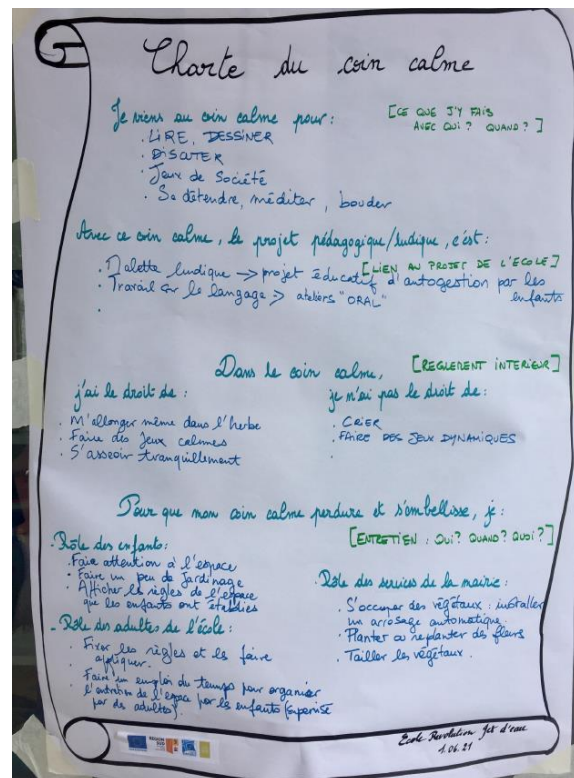 Charte du coin calme
Je viens au coin calme pour : [CE QUE J'Y FAIS
AVEC QUI ? QUAND ? ]
. LIRE, DESSINER
. DISCUTER
. Jeux de Société
. Se détendre, méditer, bouder
Avec ce coin calme, le projet pédagogique/ludique, c'est :
[LIEN AU PROJET DE L'ECOLE]
. Malette ludique -> projet éducatif d'autogestion par les
enfants
. Travail sur le langage => ateliers "ORAL"
.
Dans le coin calme, [REGLEMENT INTERIEUR]
j'ai le droit de :
. M'allonger même dans l'herbe
. Faire des Jeux calmes
. S'asseoir tranquillement
je n'ai pas le droit de :
. CRIER
. FAIRE DES JEUX DYNAMIQUES
.
Pour que mon coin calme perdure et s'embellisse, je :
[ENTRETIEN : QUI ? QUAND ? QUOI ?]
- Rôle des enfants :
. Faire attention à l'espace
. Faire un peu de Jardinage
. Afficher les règles de l'espace
que les enfants ont établies
- Rôle des adultes de l'école :
. Fixer les règles et les faire
appliquer.
. Faire un emploi du temps pour organiser
l'entretien de l'espace par les enfants (supervisé
par des adultes).
. Rôle des services de la mairie :
. S'occuper des végétaux : installer
un arrosage automatique.
. Planter ou replanter des fleurs
. Tailler les végétaux.
REGION
SUD
Ecole Revolution Jet d'eau
1.06.21